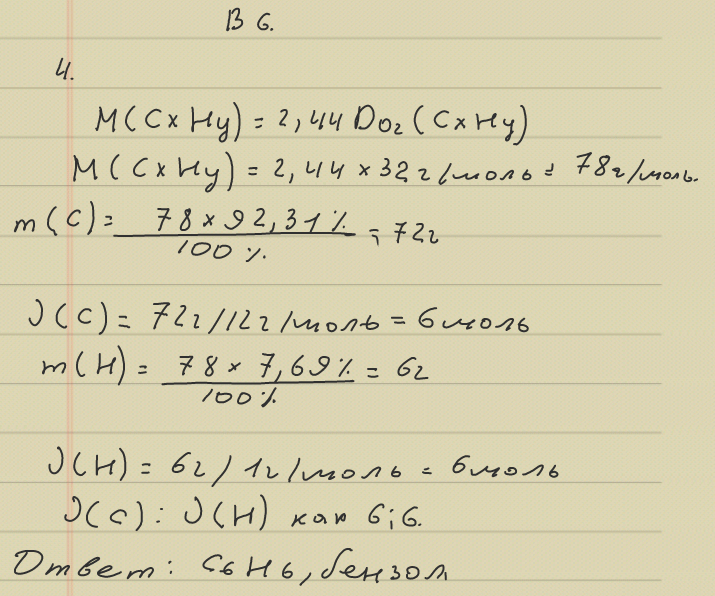 В 6.
4.
M(CxHy) = 2,44 Do₂(CxHy)
M(CxHy) = 2,44 × 32 г/моль = 78г/моль.
m(C) = 78 × 92,31% / 100% = 72г
ν(C) = 72г/12г/моль = 6моль
m(H) = 78 × 7,69% / 100% = 6г
ν(H) = 6г/1г/моль = 6моль
ν(C) : ν(H) как 6:6.
Ответ: C6H6, бензол